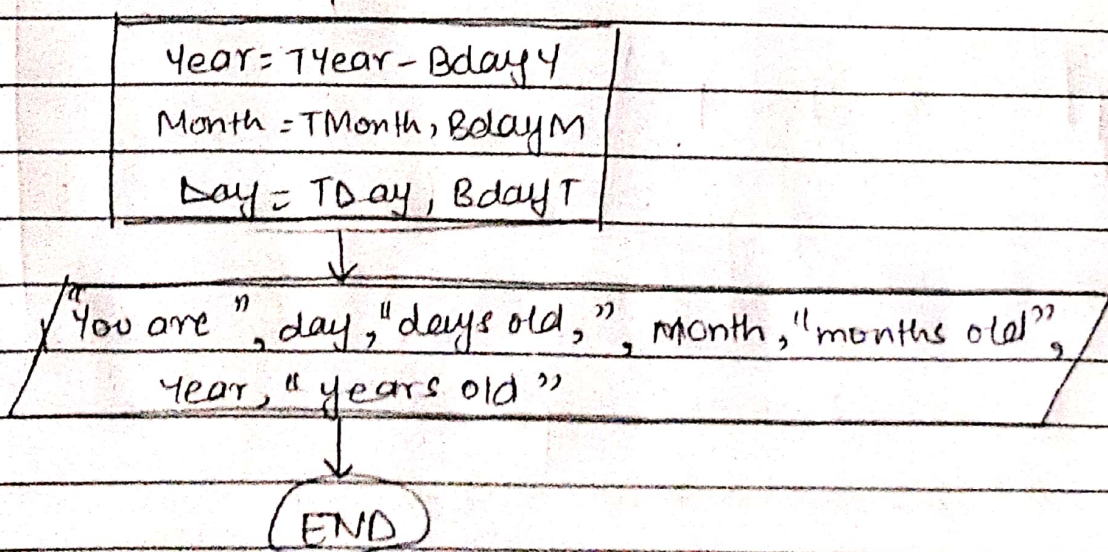 Year = TYear - BdayY
Month = TMonth, BdayM
Day = TDay, BdayT
"You are", day, "days old,", month, "months old",
year, "years old"
END